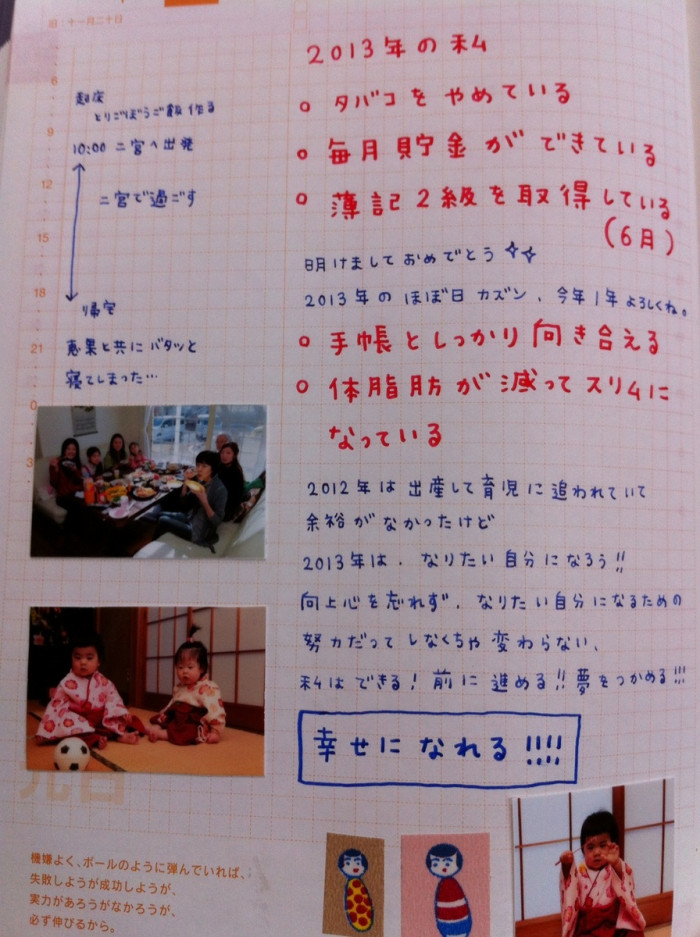 旧:十一月二十日
6
9
12
15
18
21
0
3
起床
とりごぼうご飯作る
10:00 二宮へ出発
二宮で過ごす
帰宅
恵果と共にバタッと
寝てしまった…
2013年の私
○ タバコをやめている
○ 毎月貯金ができている
○ 簿記2級を取得している
(6月)
明けましておめでとう
2013年のほぼ日カズン、今年1年よろしくね。
○ 手帳としっかり向き合える
○ 体脂肪が減ってスリムに
なっている
2012年は出産して育児に追われていて
余裕がなかったけど
2013年は、なりたい自分になろう!!
向上心を忘れず、なりたい自分になるための
努力だってしなくちゃ変わらない、
私はできる!前に進める!!夢をつかめる!!!
幸せになれる!!!!
元日
機嫌よく、ボールのように弾んでいれば、
失敗しようが成功しようが、
実力があろうがなかろうが、
必ず伸びるから。